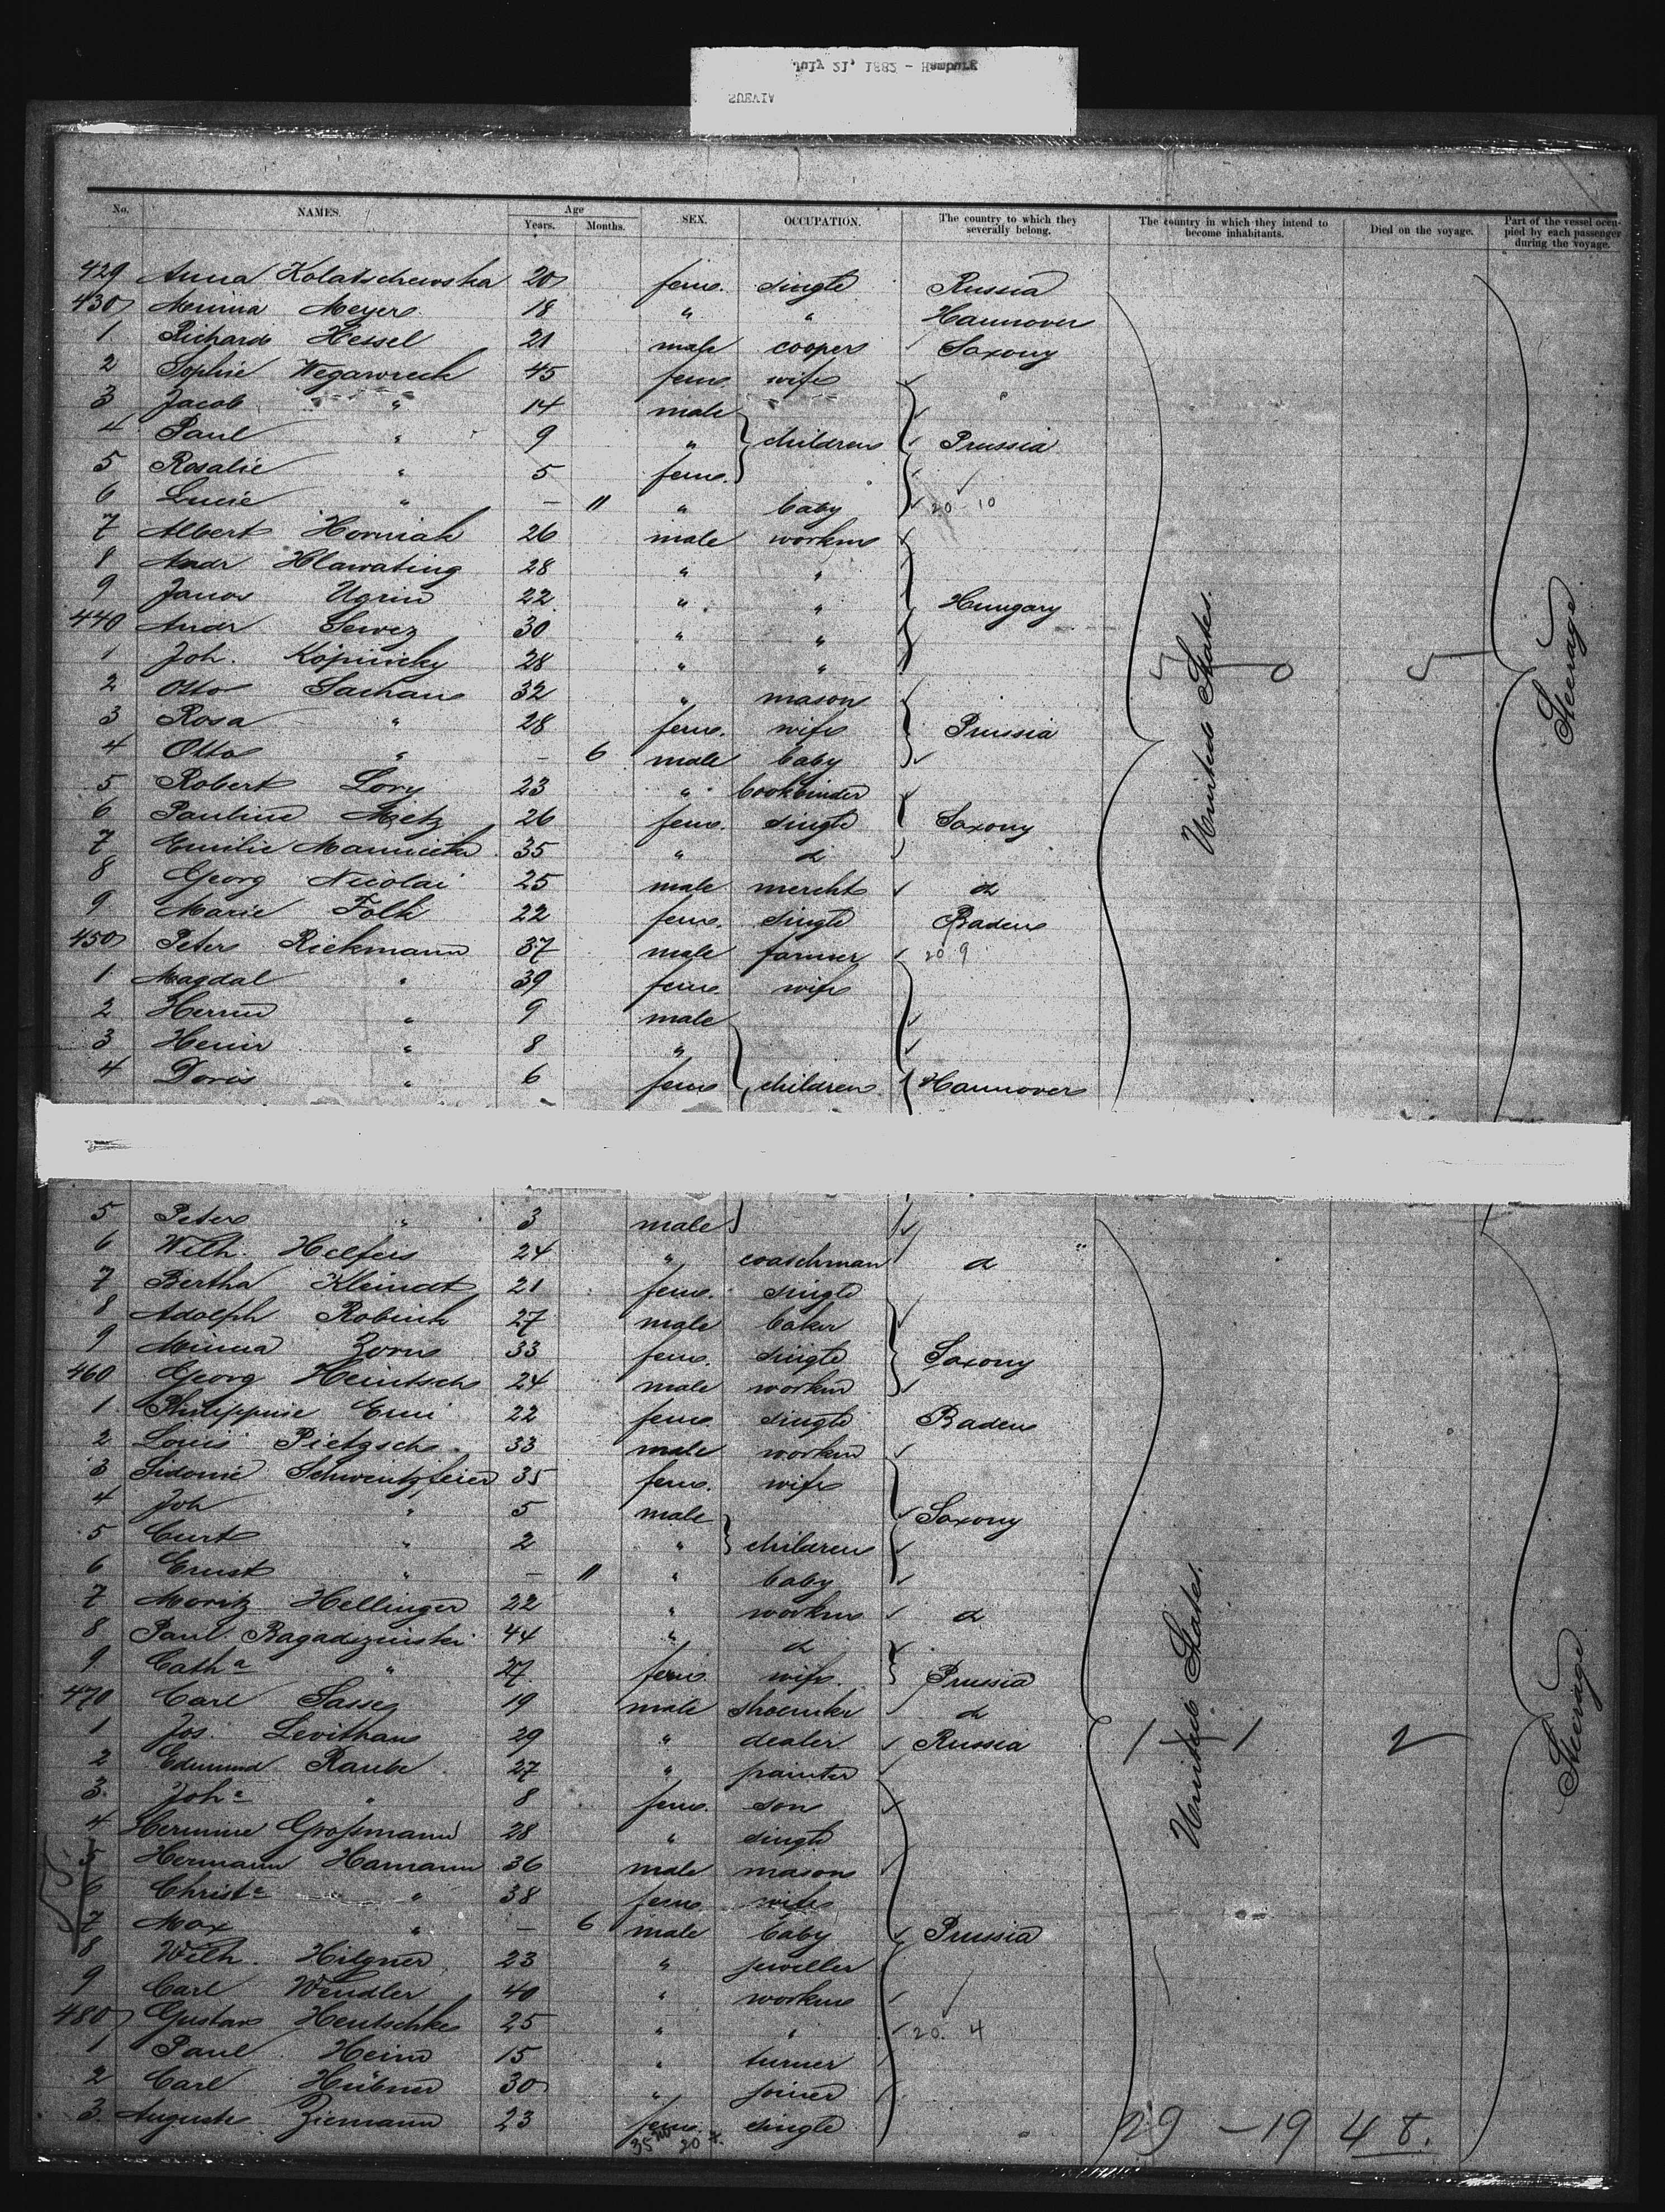 July 21, 1882 - Hamburg
SUEVIA
No. NAMES. Age Years. Months. SEX. OCCUPATION. The country to which they severally belong. The country in which they intend to become inhabitants. Died on the voyage. Part of the vessel occupied by each passenger during the voyage.
429 Anna Kolatschewska 20 fem. single Russia
430 Minna Meyer 18 " " Hannover
1 Richard Hessel 21 male cooper Saxony
2 Sophie 45 fem. wife
3 Jacob " 14 male
4 Paul " 9 " children Prussia
5 Rosalie " 5 fem.
6 Lucie " – 11 " baby 20 10
7 Albert Horniak 26 male workm
8 Andr Hlawating 28 " "
9 Janos Ugrin 22 " " Hungary
440 Andr 30 " "
1 Joh. 28 " "
2 Otto Sachau 32 " mason
3 Rosa " 28 fem. wife Prussia
4 Otto " – 6 male baby
5 Robert Lory 23 " bookbinder
6 Pauline Metz 26 fem. single Saxony
7 Emilie 35 " d
8 Georg Nicolai 25 male mercht d
9 Marie Folk 22 fem. single Baden
450 Peter Riekmann 37 male farmer 20 9
1 Magdal " 39 fem. wife
2 Herm " 9 male
3 Heinr " 8 "
4 Doris " 6 fem children Hannover
United States.
Steerage
5 Peter " 3 male
6 Wilh. Helfers 24 " coaschman d
7 Bertha Kleindt 21 fem. single
8 Adolph Robink 27 male baker
9 Minna Zorn 33 fem. single Saxony
460 Georg Heintsch 24 male workm
1 Philippine Erni 22 fem. single Baden
2 Louis Pietzsch 33 male workm
3 Sidonie 35 fem. wife
4 Joh " 5 male Saxony
5 Curt " 2 " children
6 Ernst " – 11 " baby
7 Moritz Hellinger 22 " workm d
8 Paul Ragadzinski 44 " d
9 Catha " 27 fem. wife Prussia
470 Carl Sasse 19 male shoemkr d
1 Jos. Levithan 29 " dealer Russia
2 Edmund Raube 27 " painter
3 Joha " 8 fem. son
4 Hermine Großmann 28 " single
5 Hermann Hamann 36 male mason
6 Christe " 38 fem. wife
7 Max " – 6 male baby Prussia
8 Wilh. Hilgner 23 " jeweller
9 Carl Wendler 40 " workm
480 Gustav Hentschke 25 " " 20. 4
1 Paul Hein 15 " turner
2 Carl Hübner 30 " joiner
3 Auguste Ziemann 23 fem. single
United States.
Steerage
29 – 19 48.